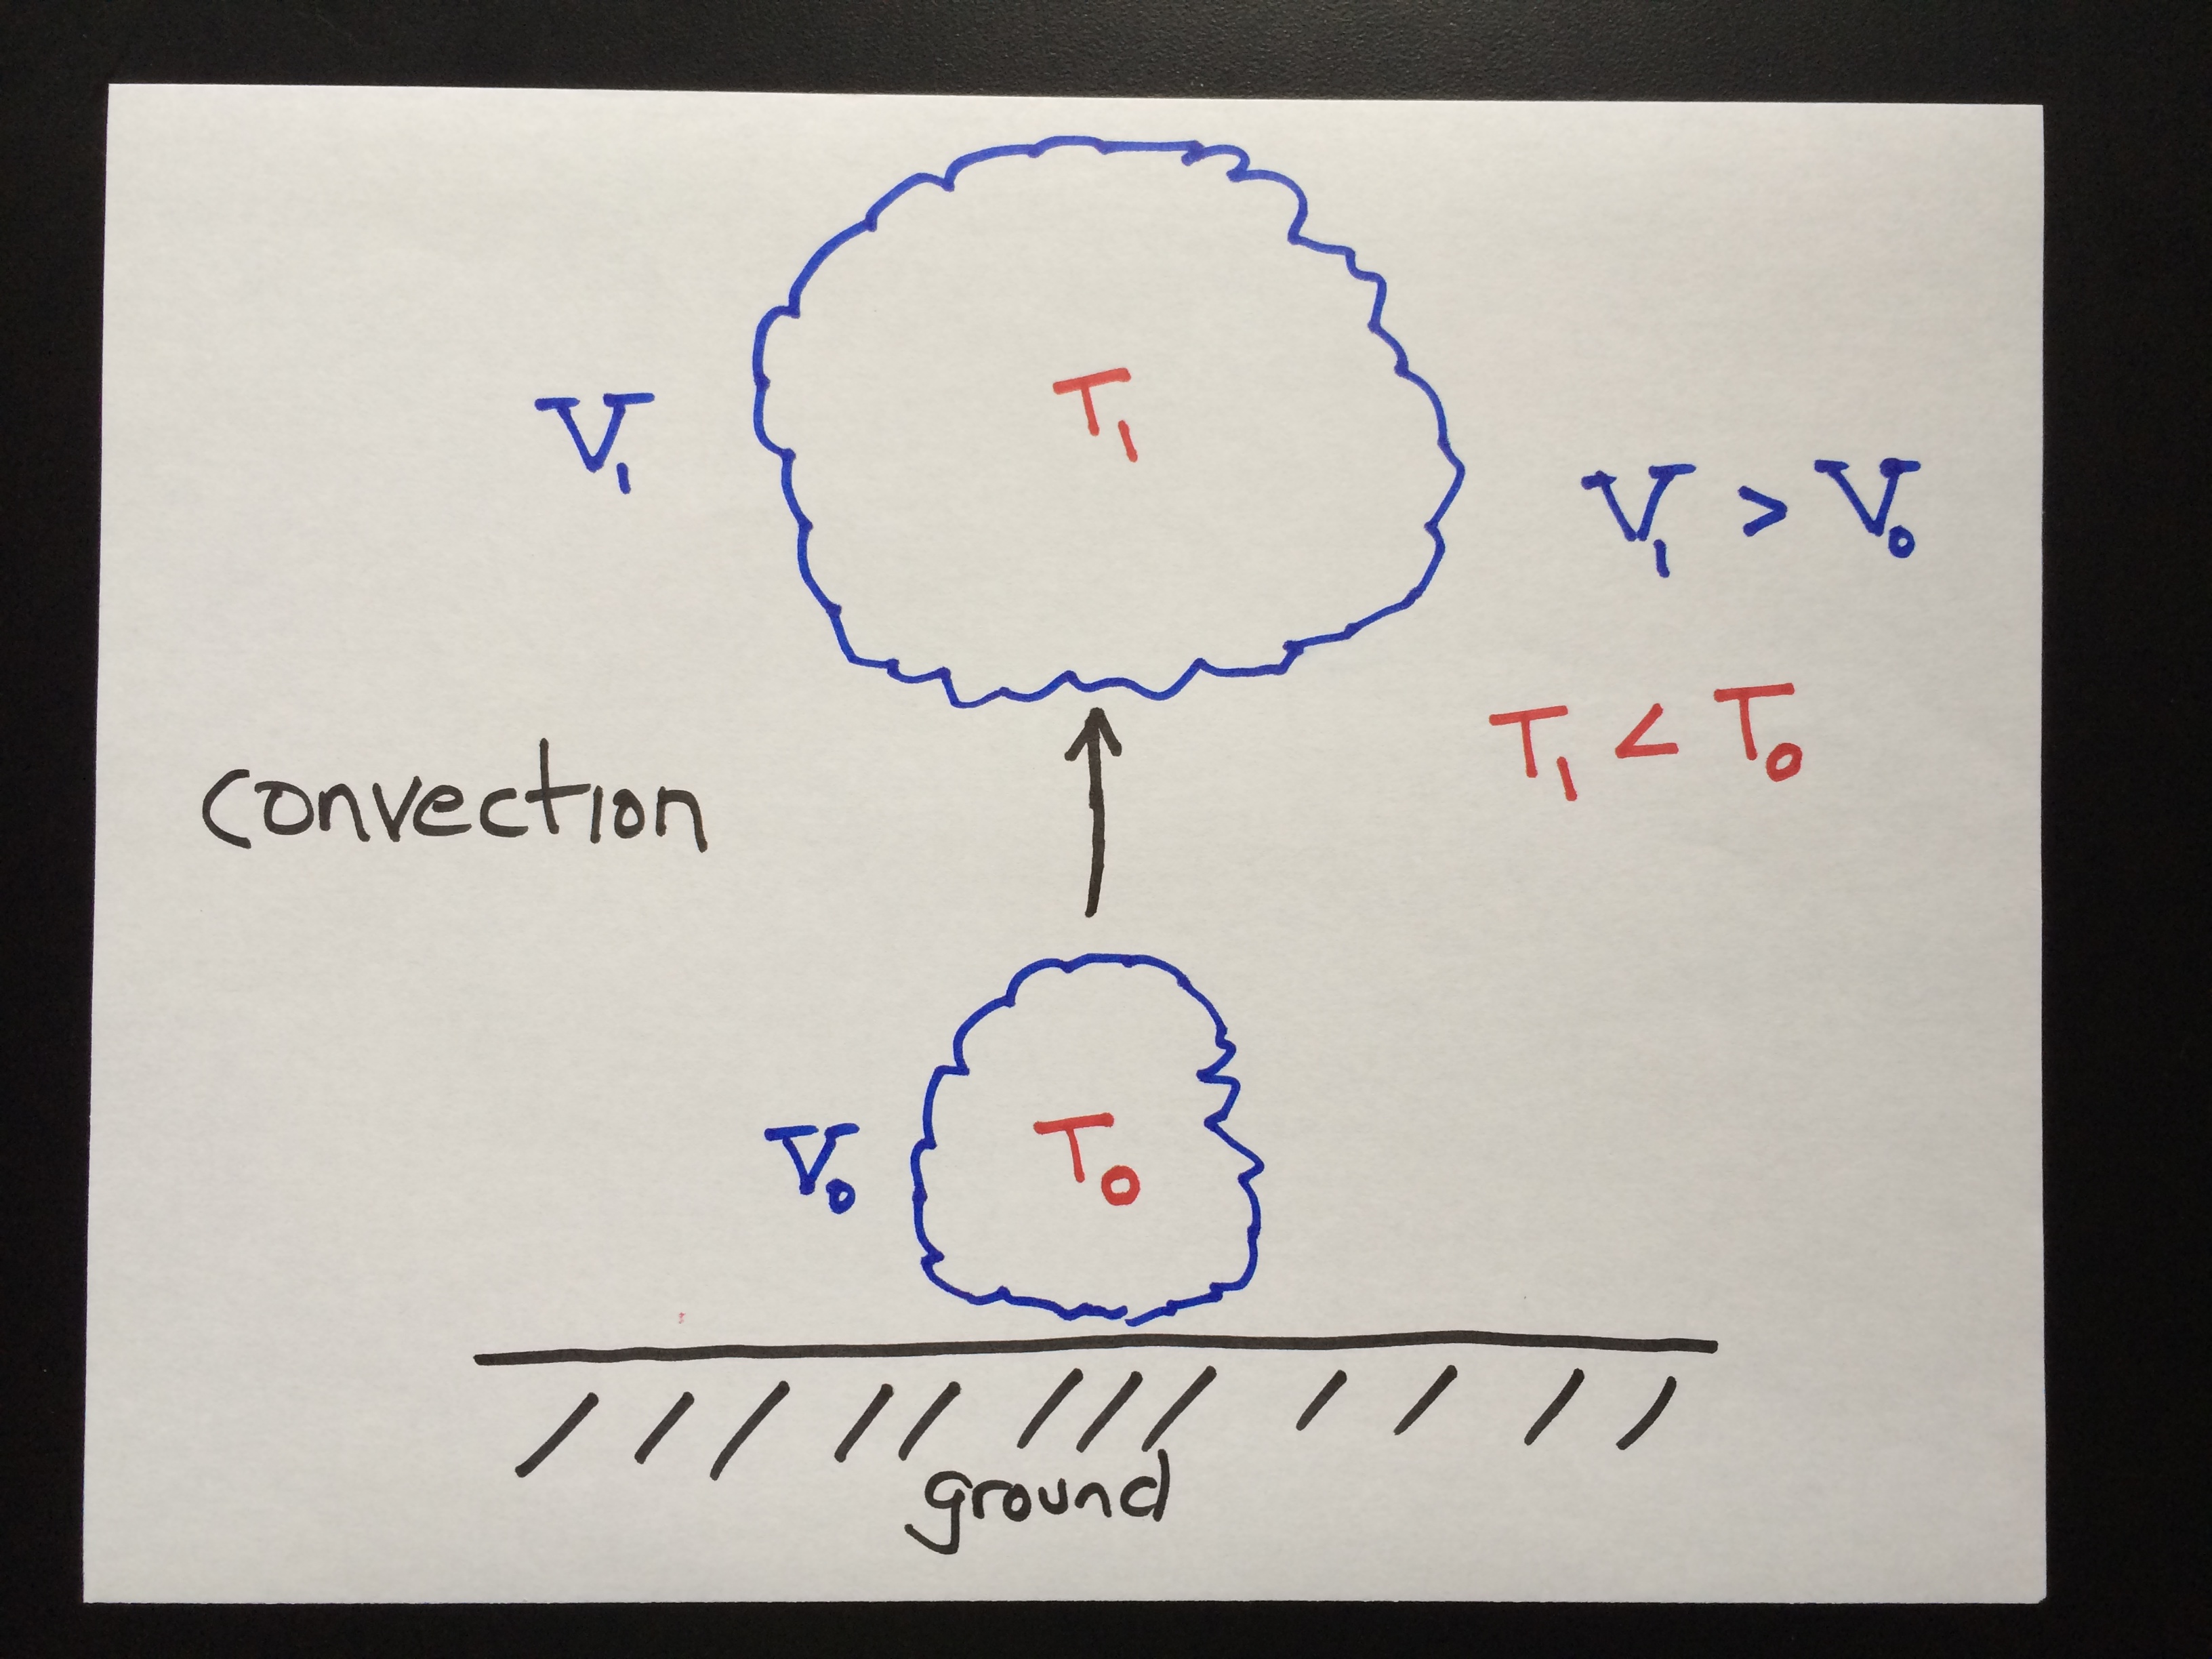 T₁
V₁
V₁ > V₀
T₁ < T₀
convection
T₀
V₀
ground